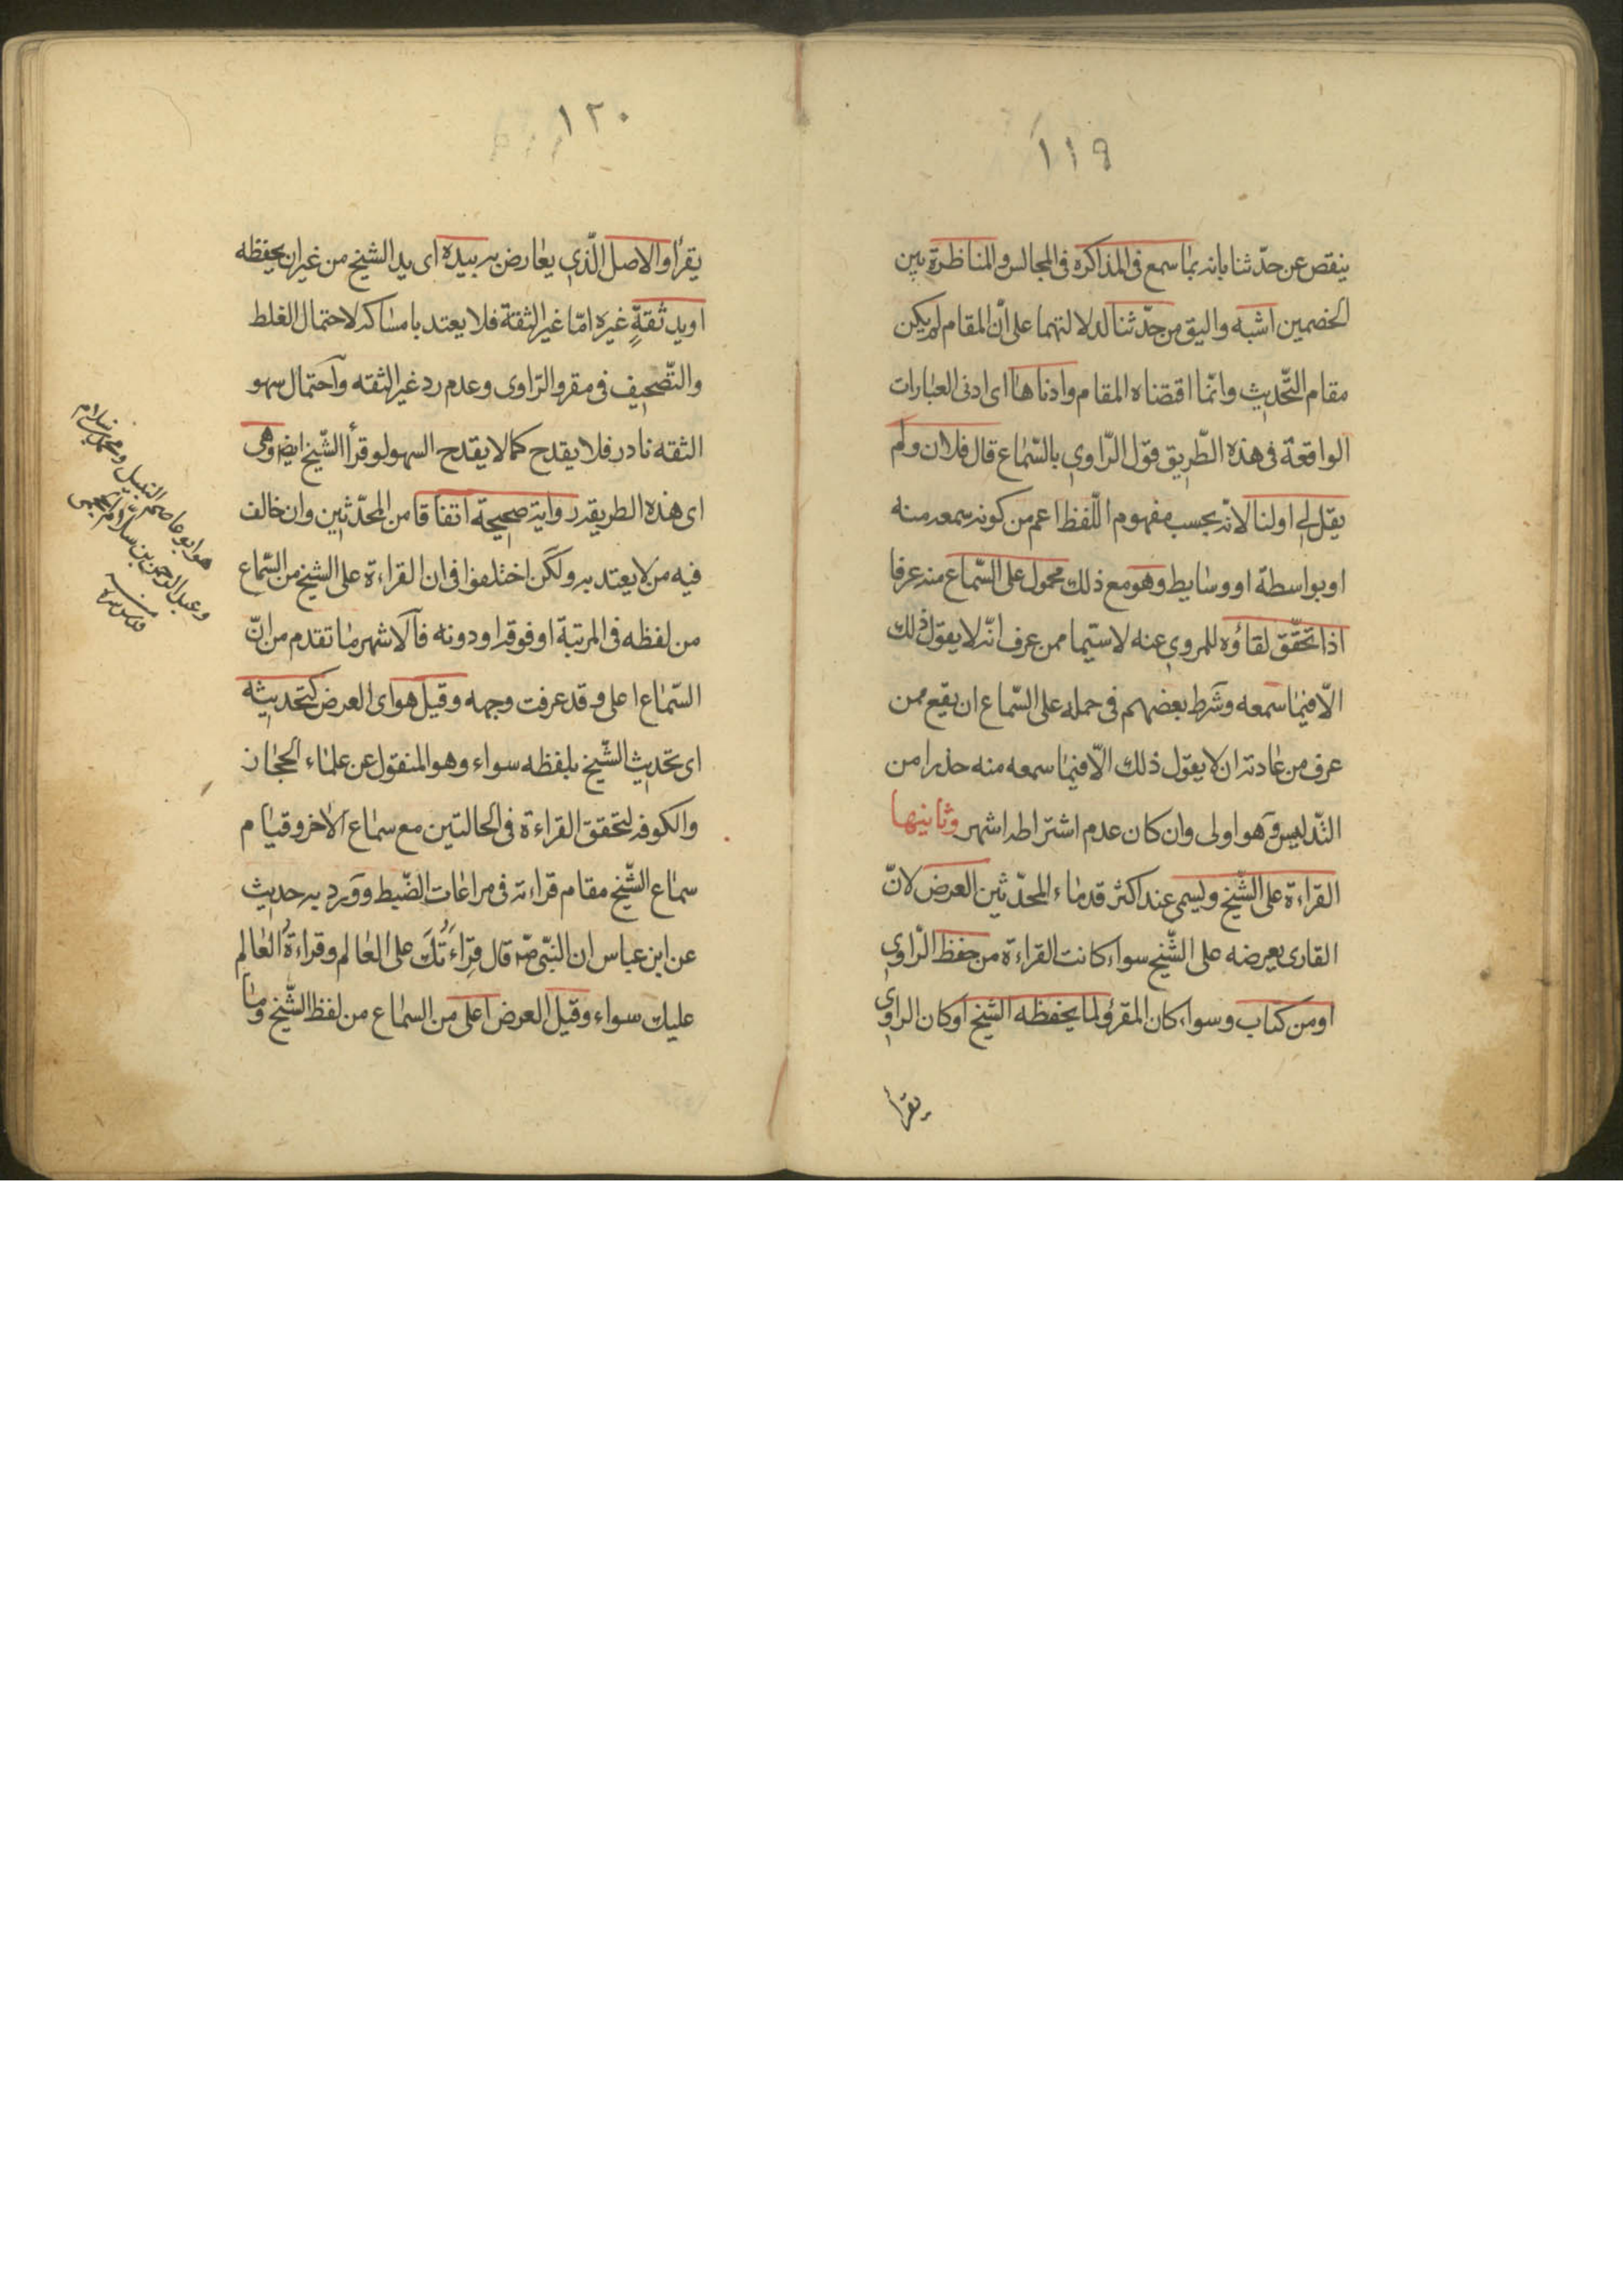 ١١٩
ينقص عن حدّثنا بانه بما سمع فى المذاكرة فى المجالس والمناظرة بين
الخصمين اشبه واليق من حدّثنا لدلالتهما على انّ المقام لم يكن
مقام التّحديث وانّما اقتضاه المقام وادناها اى ادنى العبارات
الواقعة فى هذه الطّريق قول الرّاوي بالسّماع قال فلان ولم
يقل لي او لنا لانه بحسب مفهوم اللّفظ اعم من كونه سمعه منه
او بواسطة او وسايط وهو مع ذلك محمول على السّماع منه عرفا
اذا تحقّق لقاؤه للمروي عنه لا سيّما ممن عرف انّه لا يقول ذلك
الّا فيما سمعه وشرط بعضهم فى حمله على السّماع ان يقع ممن
عرف من عادته ان لا يقول ذلك الّا فيما سمعه منه حذرا من
التّدليس وهو اولى وان كان عدم اشتراطه اشهر وثانيها
القراءة على الشّيخ ويسمى عند اكثر قدماء المحدّثين العرض لانّ
القارى يعرضه على الشّيخ سواء كانت القراءة من حفظ الرّاوي
او من كتاب وسواء كان المقرؤ لما يحفظه الشّيخ او كان الراوي
يقرأ
١٢٠
يقرأ والاصل الّذي يعارض به بيده اى يد الشيخ من غير ان يحفظه
او يد ثقةٍ غيره امّا غير الثقة فلا يعتد بامساكه لاحتمال الغلط
والتّصحيف فى مقرو الرّاوى وعدم رد غير الثقه واحتمال سهو
الثقه نادر فلا يقدح كما لا يقدح السهو لو قرأ الشّيخ ايضا وهى
اى هذه الطريقه رواية صحيحة اتفاقا من المحدّثين وان خالف
فيه من لا يعتد به ولكن اختلفوا فى ان القراءة على الشيخ من السّماع
من لفظه فى المرتبة او فوقه او دونه فالاشهر ما تقدم من انّ
السّماع اعلى وقد عرفت وجهه وقيل هو اى العرض كتحديثه
اى تحديث الشّيخ بلفظه سواء وهو المنقول عن علماء الحجاز
والكوفه لتحقق القراءة فى الحالتين مع سماع الاخر وقيام
سماع الشّيخ مقام قراءته فى مراعات الضّبط وورد به حديث
عن ابن عباس ان النبّى صه قال قِراءَتُكَ على العالم وقراءةُ العالم
عليك سواء وقيل العرض اعلى من السماع من لفظ الشّيخ وما
هو ابو عاصم النبيل ومحمد بن سلام
وعبد الرحمن بن سلام الجمحى
منه
قدس سره